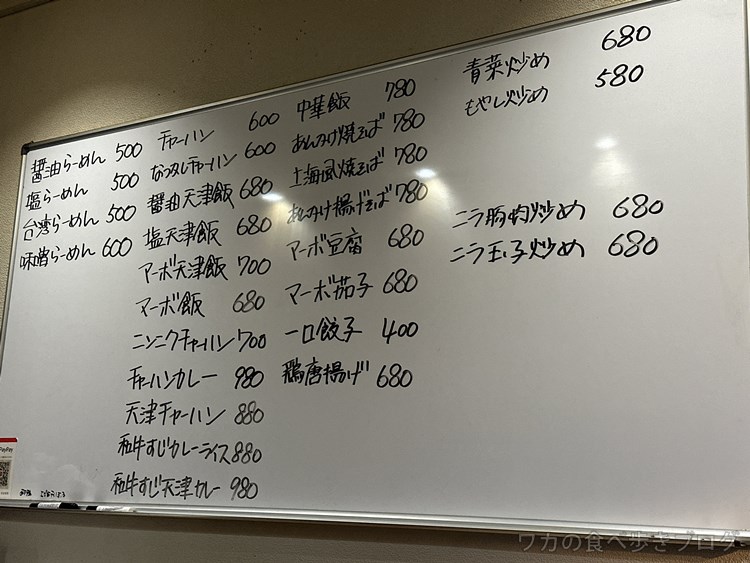 醤油らーめん 500
塩らーめん 500
台湾らーめん 500
味噌らーめん 600
チャーハン 600
なつかしチャーハン 600
醤油天津飯 680
塩天津飯 680
マーボ天津飯 700
マーボ飯 680
ニンニクチャーハン 700
チャーハンカレー 980
天津チャーハン 880
和牛すじカレーライス 880
和牛すじ天津カレー 980
中華飯 780
あんかけ焼そば 780
上海風焼そば 780
あんかけ揚げそば 780
マーボ豆腐 680
マーボ茄子 680
一口餃子 400
鶏唐揚げ 680
青菜炒め 680
もやし炒め 580
ニラ豚肉炒め 680
ニラ玉子炒め 680
PayPay
ワカの食べ歩きブログ